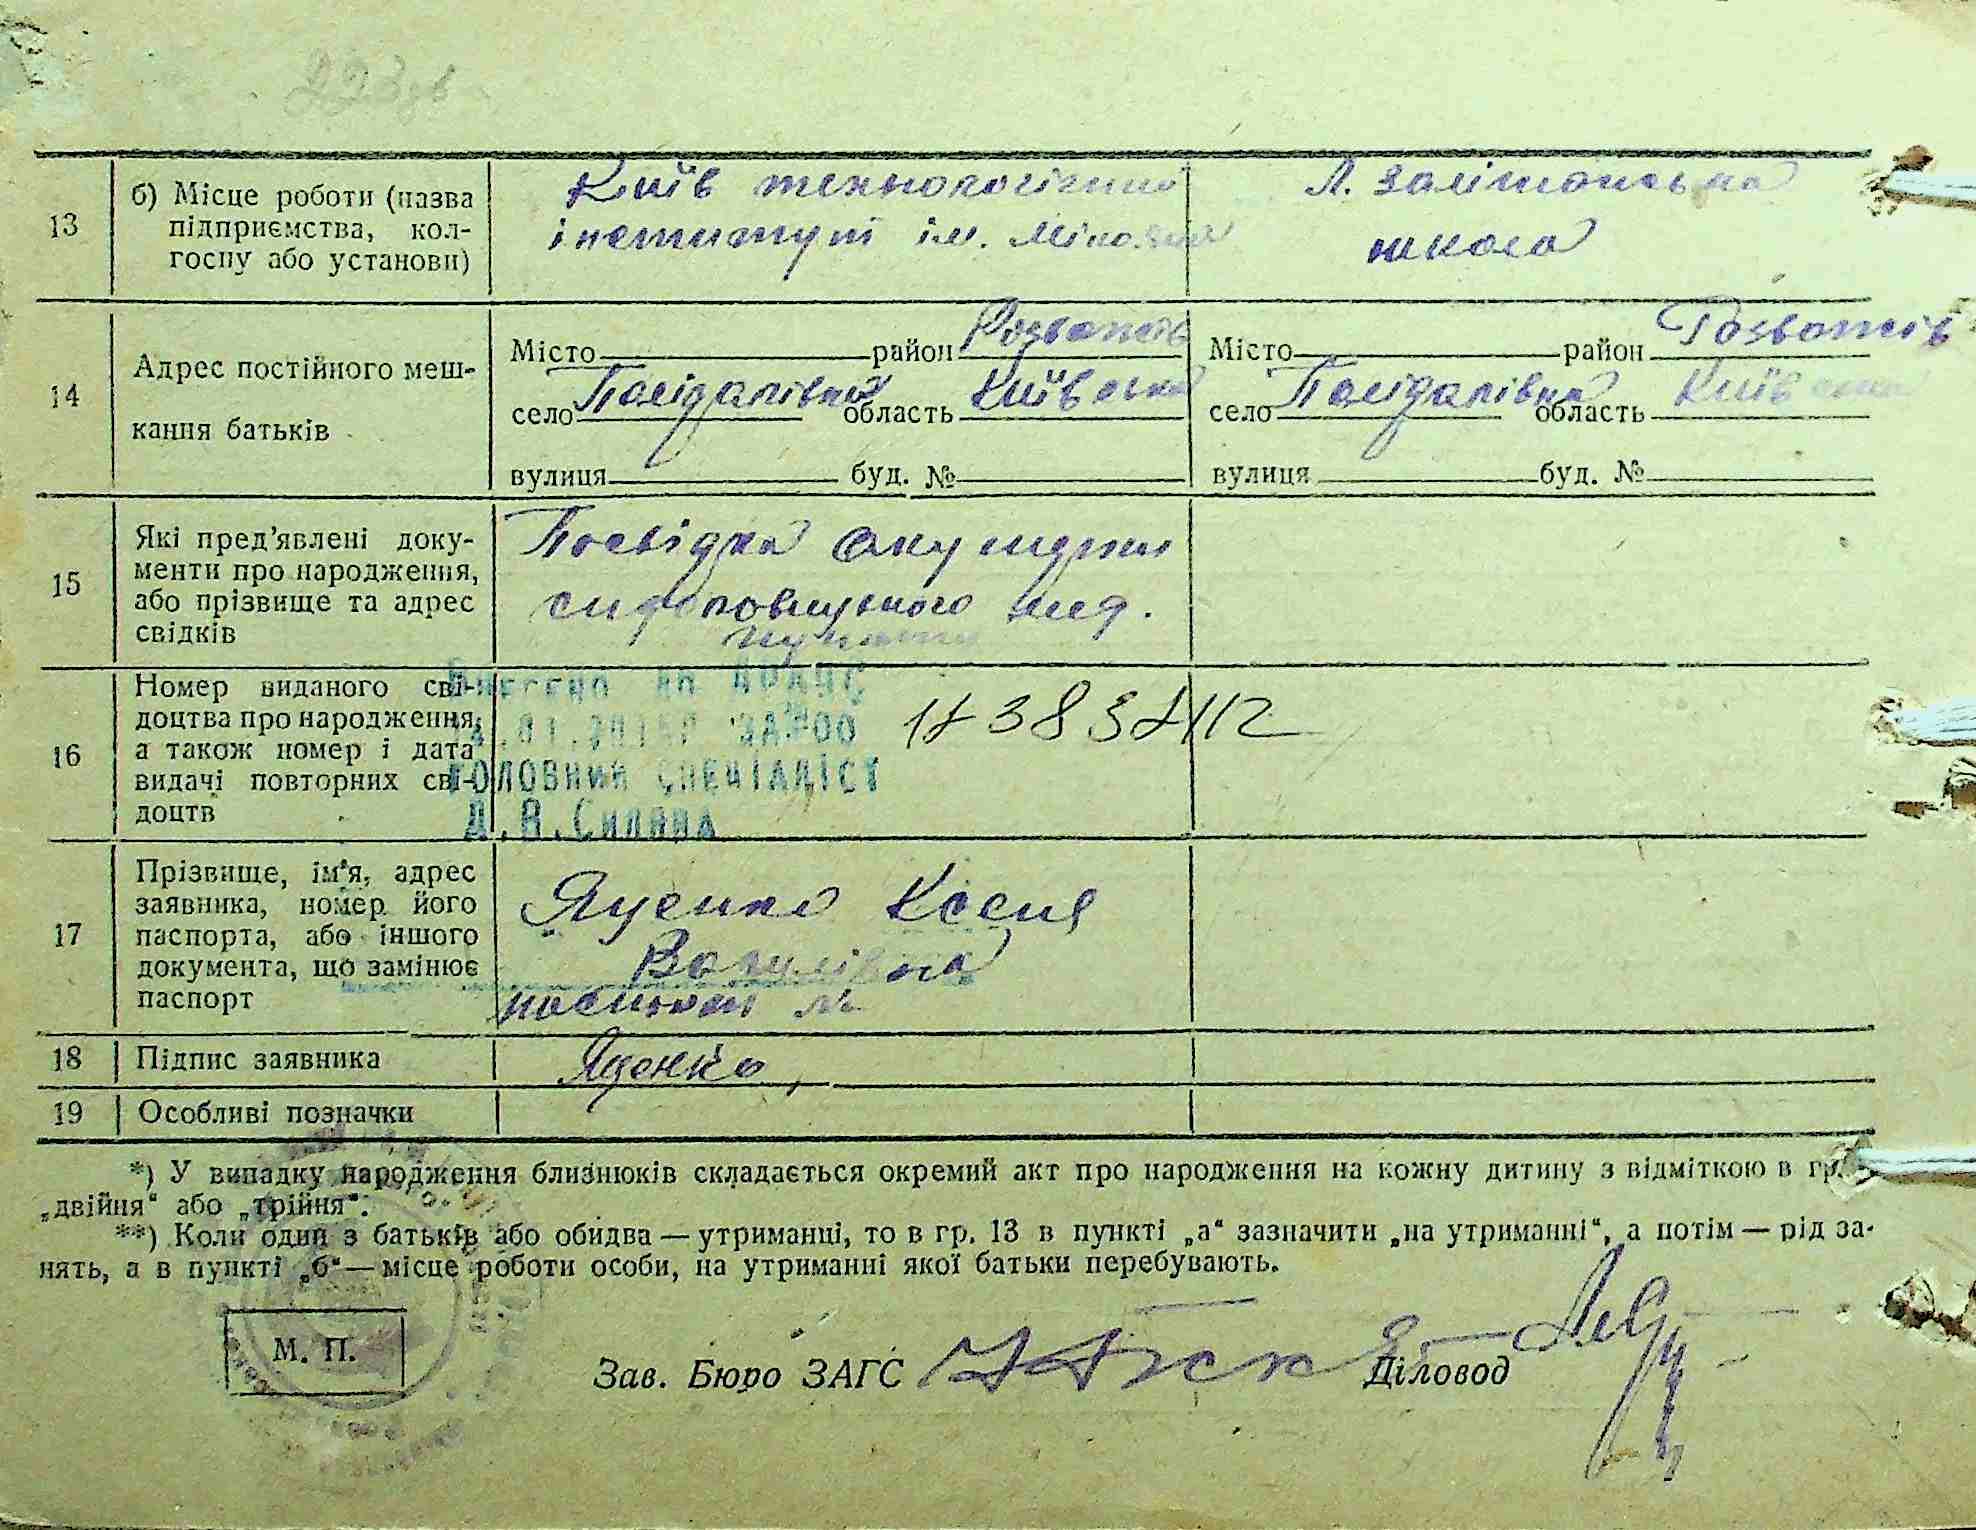 13
б) Місце роботи (назва
підприємства, кол-
госпу або установи)
Київ технологічний
інститут ім. Мікояна
школа
14
Адрес постійного меш-
кання батьків
Місто район Розважів
село область Київська
вулиця буд. №
Місто район Розважів
село область Київська
вулиця буд. №
15
Які пред'явлені доку-
менти про народження,
або прізвище та адрес
свідків
Посвідка акушерки
мед.
пункта
16
Номер виданого сві-
доцтва про народження,
а також номер і дата
видачі повторних сві-
доцтв
Внесено до
ГОЛОВНИЙ СПЕЦІАЛІСТ
17
Прізвище, ім'я, адрес
заявника, номер його
паспорта, або іншого
документа, що замінює
паспорт
Яценко Ксеня
Василівна
18
Підпис заявника
Яценко
19
Особливі позначки
*) У випадку народження близнюків складається окремий акт про народження на кожну дитину з відміткою в гр.
„двійня“ або „трійня“.
**) Коли один з батьків або обидва — утриманці, то в гр. 13 в пункті „а“ зазначити „на утриманні“, а потім — рід за-
нять, а в пункті „б“ — місце роботи особи, на утриманні якої батьки перебувають.
М. П.
Зав. Бюро ЗАГС
Діловод